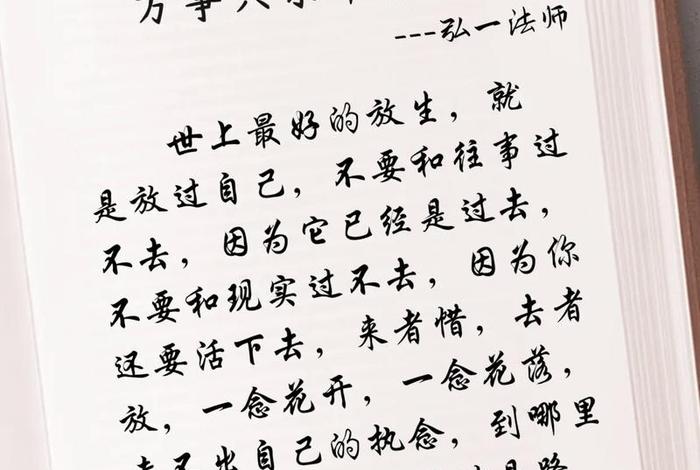 万事
---弘一法师
世上最好的放生，就
是放过自己，不要和往事过
不去，因为它已经是过去，
不要和现实过不去，因为你
还要活下去，来者惜，去者
放，一念花开，一念花落，
走不出自己的执念，到哪里